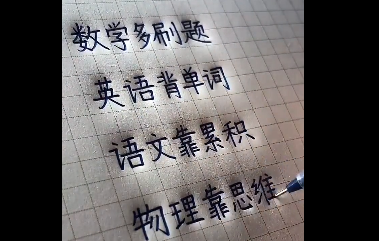 数学多刷题
英语背单词
语文靠累积
物理靠思维